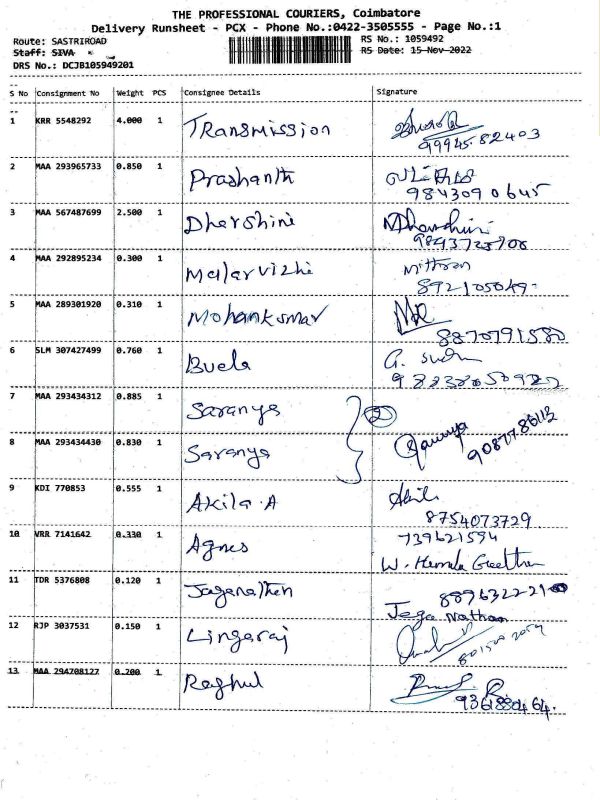 THE PROFESSIONAL COURIERS, Coimbatore
Delivery Runsheet - PCX - Phone No.:0422-3505555 - Page No.:1
Route: SASTRIROAD
RS No.: 1059492
Staff: SIVA
RS Date: 15-Nov-2022
DRS No.: DCJB105949201
S No Consignment No Weight PCS Consignee Details Signature
1 KRR 5548292 4.000 1 Transmission
99945 82403
2 MAA 293965733 0.850 1 Prashanth
984309 0645
3 MAA 567487699 2.500 1 Dharshine Dharshini
4 MAA 292895234 0.300 1 Malarvizhi Mithran
892105049
5 MAA 289301920 0.310 1 Mohankumar
8870791580
6 SLM 307427499 0.760 1 Buela G.
7 MAA 293434312 0.885 1 Saranya 2
8 MAA 293434430 0.830 1 Saranya Saranya
90877 86112
9 KDI 770853 0.555 1 Akila.A Akila
8754073729
10 VRR 7141642 0.330 1 Agnes 739621594
W. Hemala Geetha
11 TDR 5376808 0.120 1 Jaganathen
Jega Nathan
12 RJP 3037531 0.150 1 Lingaraj
13 MAA 294708127 0.200 1 Raghul